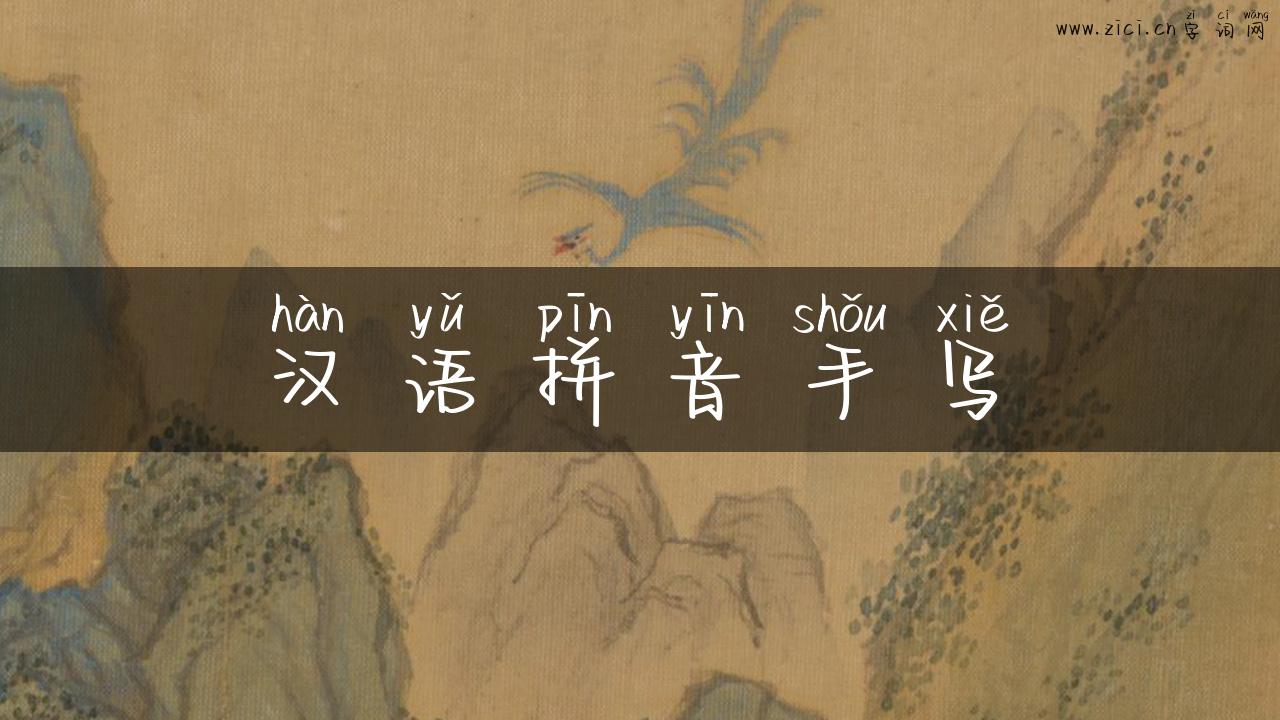 zì cí wǎng
www.zici.cn字词网
hàn yǔ pīn yīn shǒu xiě
汉语拼音手写